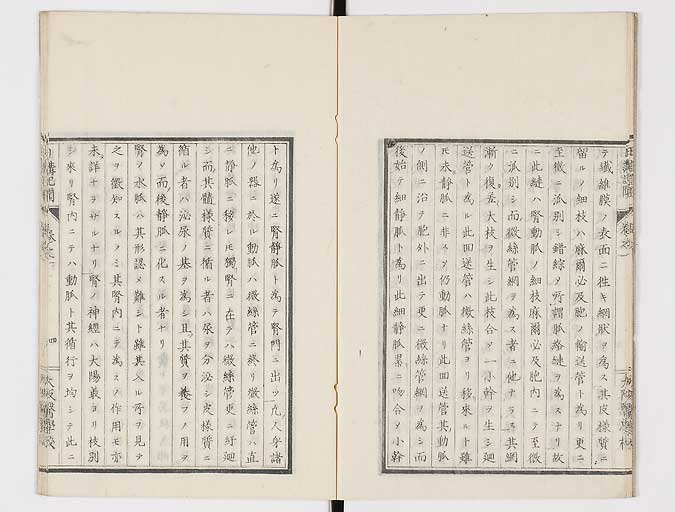 テ纖維膜ノ表面ニ徃キ網狀ヲ為ス其皮樣質ニ
留ルノ細枝ハ麻爾必及胞ノ輸送管ト為リ更ニ
至微ニ派别シ錯綜乄所謂脈絡縺ヲ為スナリ故
ニ此縺ハ腎動脈ノ細枝麻爾必及胞内ニテ至微
ニ派别シ而微絲管網ヲ為ス者ニ他ナラス其網
漸ク復左大枝ヲ生シ此枝合乄一小幹ヲ生シ廻
送管ト為ル此回送管ハ微絲管ヨリ移來ルト雖
𪜈未静脈ニ非スメ仍動脈ナリ此回送管其動脈
ノ側ニ沿テ胞外ニ出テ更ニ微絲管網ヲ為シ而
後始テ細静脈ト為リ此細静脈累ニ吻合乄小幹
ト為リ遂ニ腎静脈ト為テ腎門ニ出ツ凡人身諸
他ノ器ニ於ル動脈ハ微絲管ニ終リ微絲管ハ直
ニ静脈ニ移レ𪜈獨腎ニ在テハ微絲管更ニ紆廻
シ而其髓樣質ニ循ル者ハ尿ヲ分泌シ皮樣質ニ
循ル者ハ泌尿ノ基ヲ為シ且其質ヲ養フノ用ヲ
為乄而後静脈ニ化スル者ナリ
腎ノ水脈ハ其形認メ難シト雖其入ル所ヲ見テ
之ヲ徴知スルノミ其腎内ニテ為スノ作用モ亦
未詳ナラサルナリ腎ノ神經ハ大陽叢ヨリ枝别
シ來リ腎内ニテハ動脈ト其循行ヲ均シテ此ニ
四
大阪醫學校